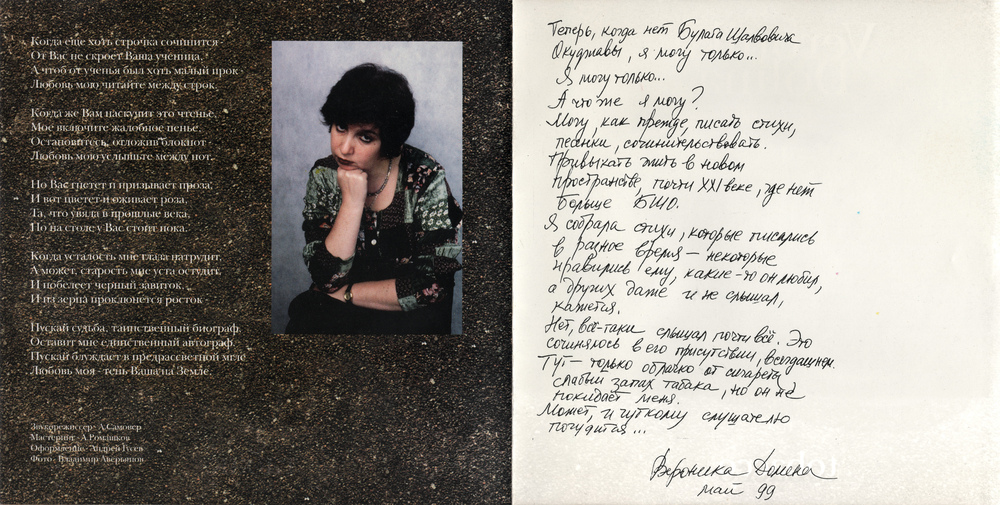 Когда еще хоть строчка сочинится -
От Вас не скроет Ваша ученица,
А чтоб от ученья был хоть малый прок -
Любовь мою читайте между строк.
Когда же Вам наскучит это чтенье,
Мое включите жалобное пенье,
Остановитесь, отложив блокнот -
Любовь мою услышьте между нот.
Но Вас гнетет и призывает проза,
И вот цветет и оживает роза,
Та, что увяла в прошлые века,
Но на столе у Вас стоит пока.
Когда усталость мне глаза натрудит,
А может, старость мне уста остудит,
И побелеет черный завиток,
И из зерна проклюнется росток -
Пускай судьба, таинственный биограф,
Оставит мне единственный автограф,
Пускай блуждает в предрассветной мгле
Любовь моя - тень Ваша на Земле.
Звукорежиссер - А.Самовер
Мастеринг - А.Ромашков
Оформление - Андрей Гусев
Фото - Владимир Аверьянов
Теперь, когда нет Булата Шалвовича
Окуджавы, я могу только...
Я могу только...
А что же я могу?
Могу, как прежде, писать стихи,
песенки, сочинительствовать.
Привыкать жить в новом
пространстве, почти XXI веке, где нет
больше БШО.
Я собрала стихи, которые писались
в разное время — некоторые
нравились ему, какие-то он любил,
а других даже и не слышал,
кажется.
Нет, всё-таки слышал почти всё. Это
сочинялось в его присутствии, всегдашнем.
Тут — только облачко от сигареты
слабый запах табака, но он не
покидает меня.
Может, и чуткому слушателю
почудится...
Вероника Долина
май 99